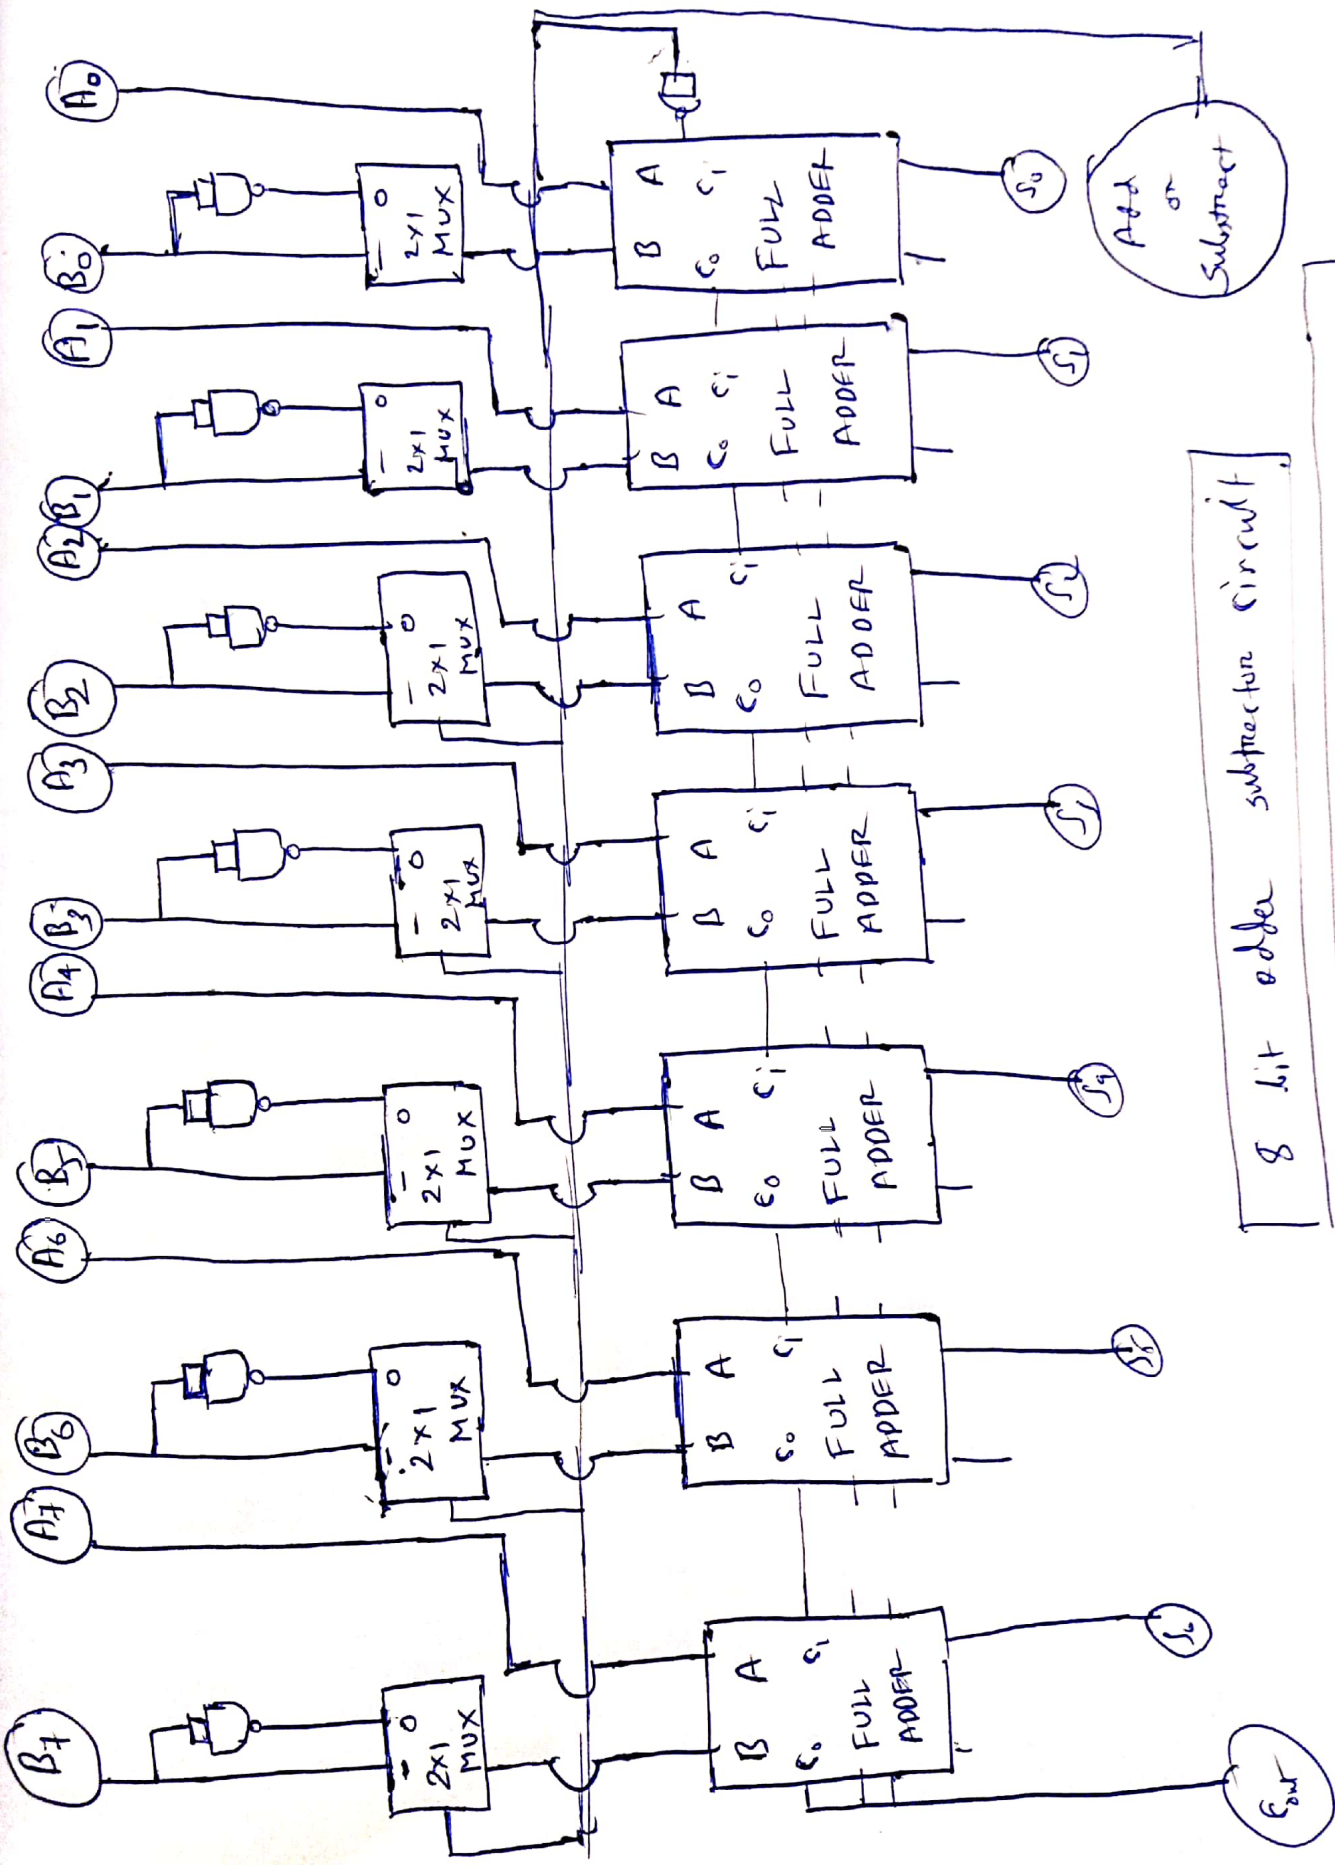 A0
B0
0
1
2x1
MUX
A
B
Ci
C0
FULL
ADDER
S0
Add
or
Substract
A1
B1
0
1
2x1
MUX
A
B
Ci
C0
FULL
ADDER
S1
A2
B2
0
1
2x1
MUX
A
B
Ci
C0
FULL
ADDER
S2
A3
B3
0
1
2x1
MUX
A
B
Ci
C0
FULL
ADDER
S3
A4
B5
0
1
2x1
MUX
A
B
Ci
C0
FULL
ADDER
S4
A6
B6
0
1
2x1
MUX
A
B
Ci
C0
FULL
ADDER
S5
A7
B7
0
1
2x1
MUX
A
B
Ci
C0
FULL
ADDER
S6
Cout
8 bit adder subtractor circuit